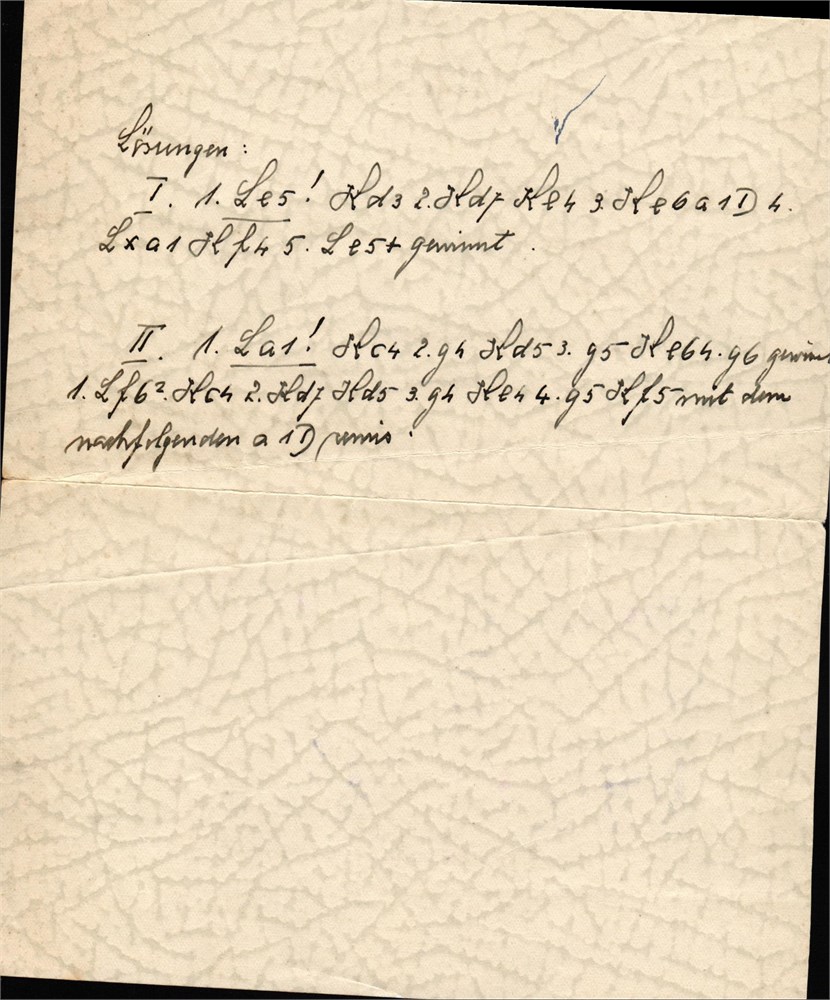 Lösungen:
I. 1. Le5! Kd3 2. Kd7 Ke4 3. Ke6 a1D 4.
Lxa1 Kf4 5. Le5+ gewinnt.
II. 1. La1! Kc4 2. g4 Kd5 3. g5 Ke6 4. g6 gewinnt
1. Lf6? Kc4 2. Kd7 Kd5 3. g4 Ke4 4. g5 Kf5 mit dem
nachfolgenden a1D remis.